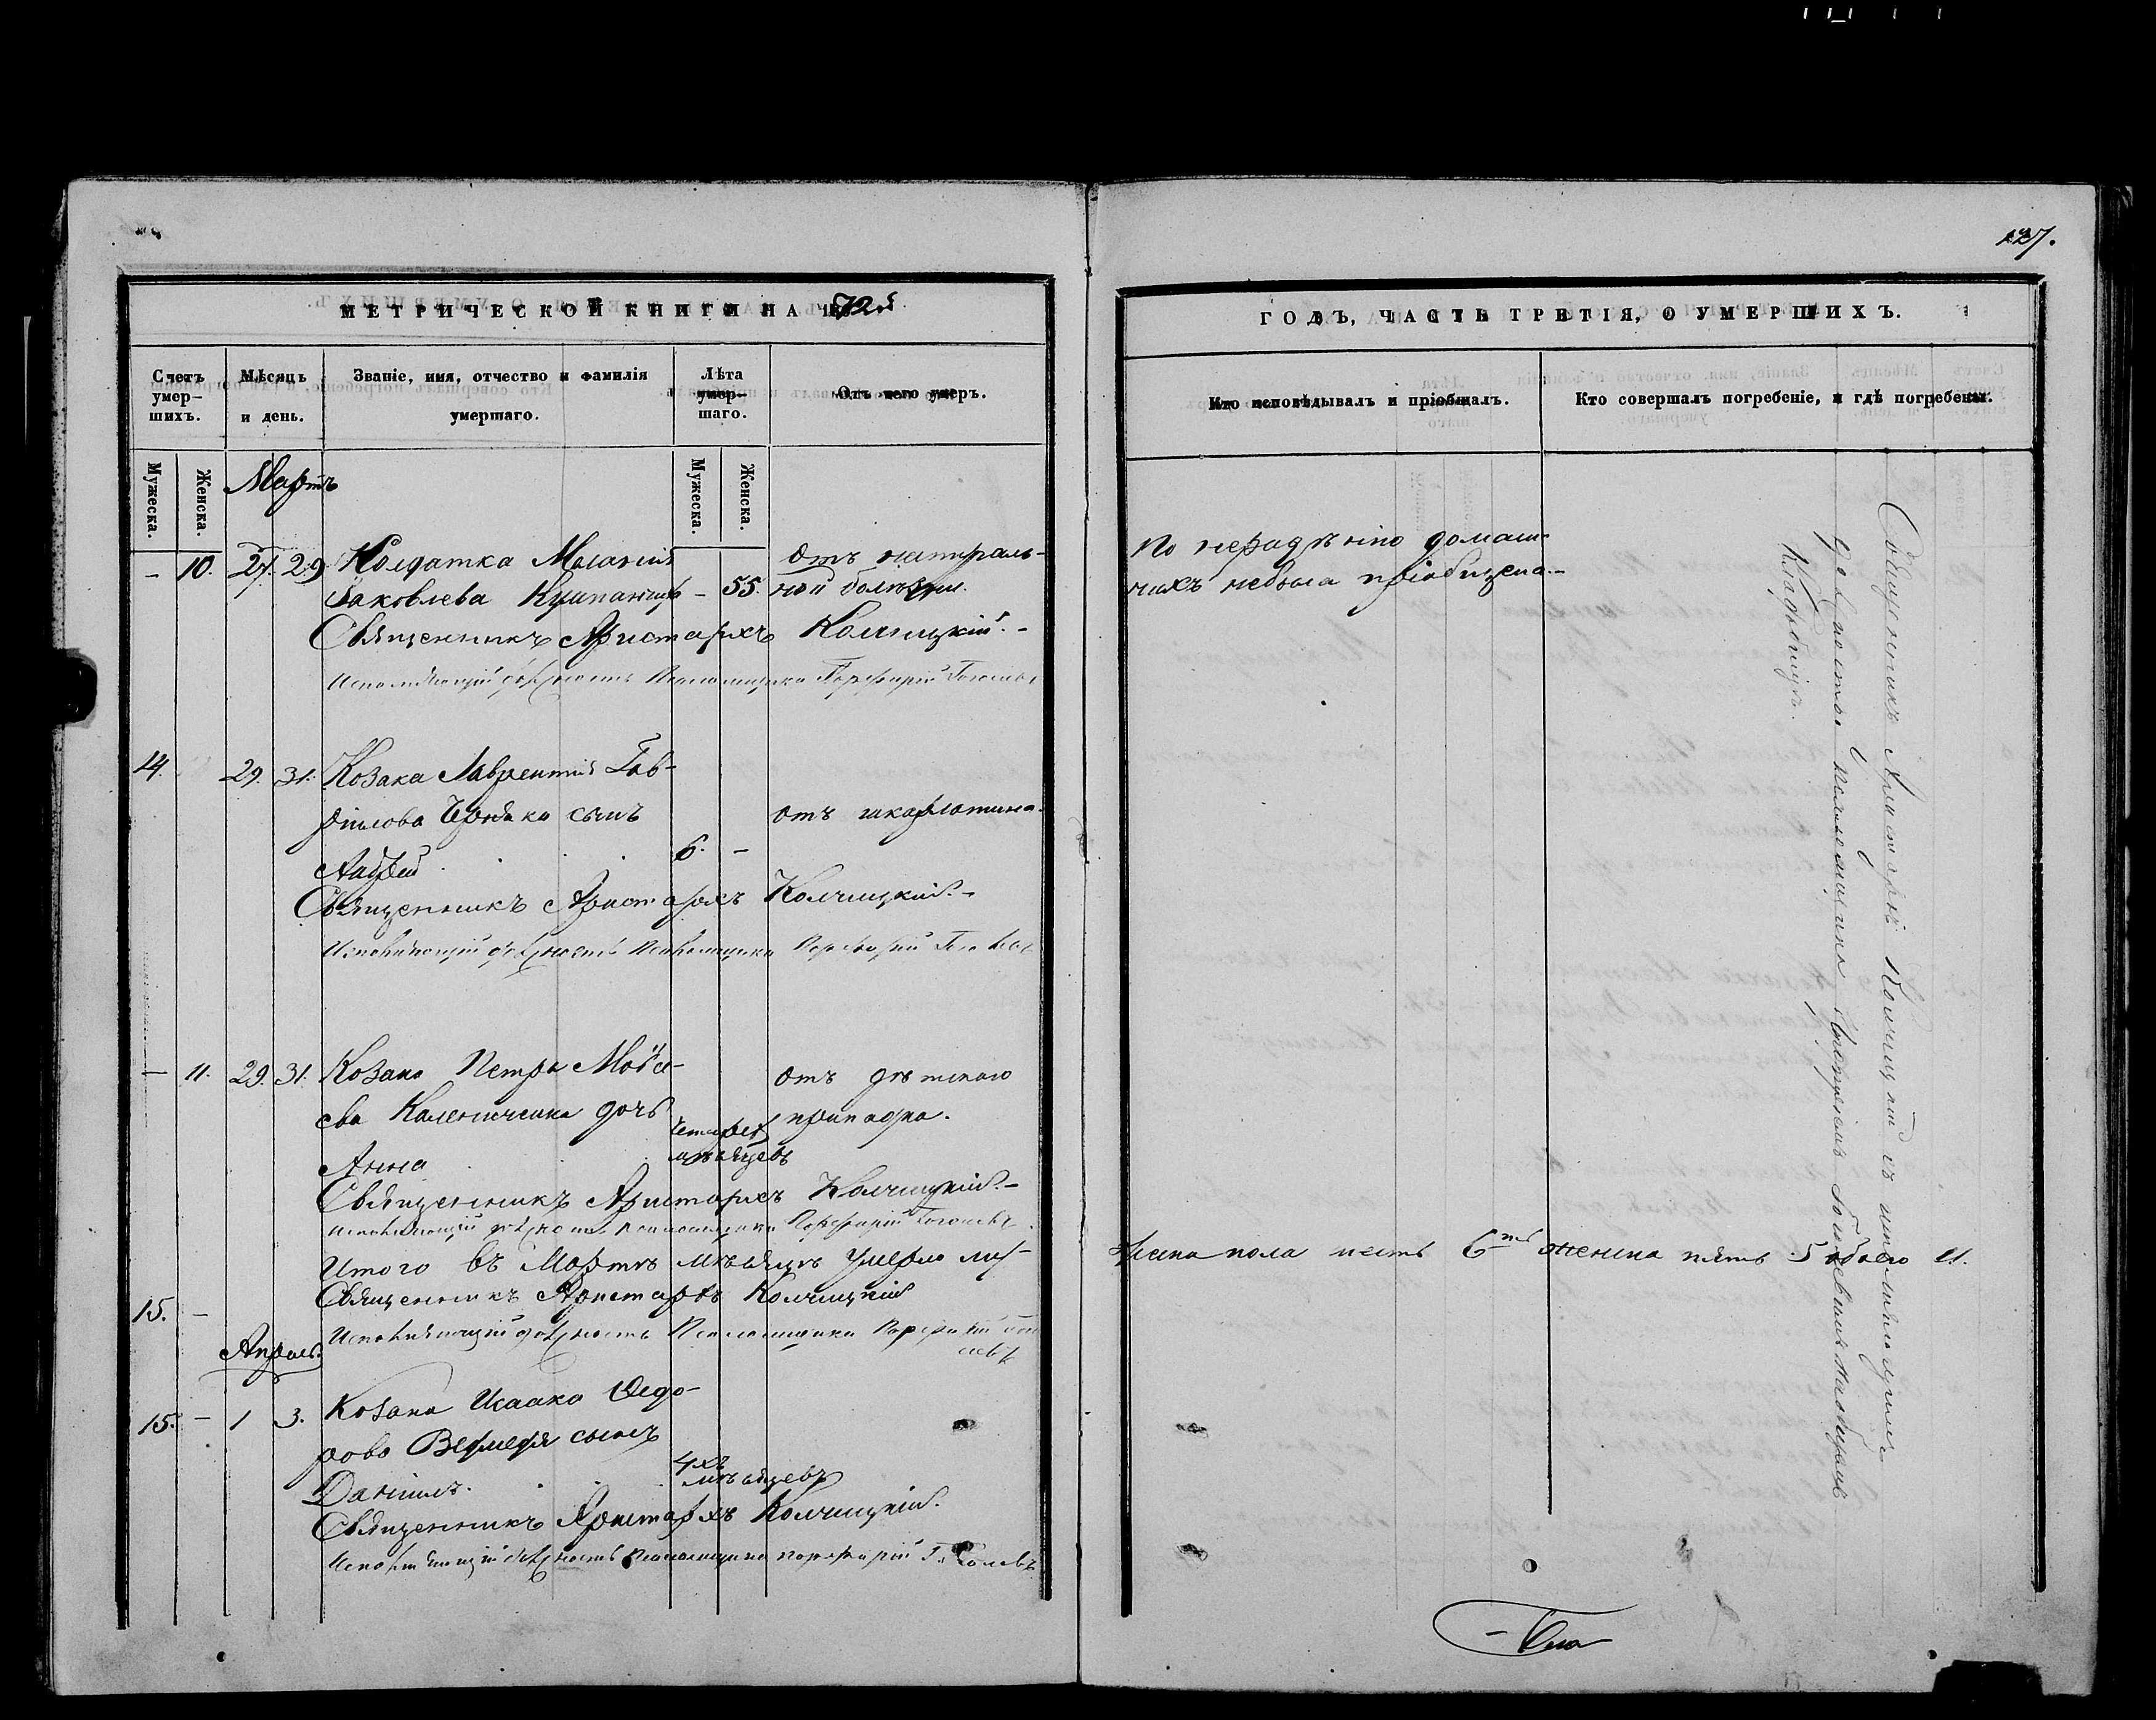 127.
МЕТРИЧЕСКОЙ КНИГИ НА 1872й
Счетъ умер-
шихъ.
Мѣсяцъ
и день.
Званіе, имя, отчество и фамилія
умершаго.
Лѣта
умер-
шаго.
Отъ чего умеръ.
Мужеска.
Женска.
Мужеска.
Женска.
Мартъ
- 10. 27. 29. Солдатка Меланія отъ натураль-
Яковлева - 55. ной болѣзни.
Священникъ Аристархъ Колчицкій.-
Исполняющій должность Псаломщика Порфирій
14. 29. 31. Козака Лаврентія Гав-
рілова сынъ отъ шкарлатина.
Андрей 6. -
Священникъ Аристархъ Колчицкій.-
Исполняющій должность Псаломщика Порфирій
- 11. 29. 31. Козака Петра Моѵсе- отъ дѣтскаго
ева Калениченка дочь припадка.
Анна четырехъ
мѣсяцевъ
Священникъ Аристархъ Колчицкій.-
Исполняющій должность Псаломщика Порфирій
Итого въ Мартѣ мѣсяцѣ умерло муж-
Священникъ Аристархъ Колчицкій
15. -
Исполняющій должность Псаломщика Порфирій
Апрель.
15. - 1 3. Козака Исаака Ѳедо-
рова сынъ
Даніилъ. 4хъ
мѣсяцевъ
Священникъ Аристархъ Колчицкій.
Исполняющій должность Псаломщика Порфирій
ГОДЪ, ЧАСТЬ ТРЕТІЯ, О УМЕРШИХЪ.
Кто исповѣдывалъ и пріобщалъ.
Кто совершалъ погребеніе, и гдѣ погребены.
По нерадѣнію домаш-
нихъ небыла пріобщена.-
пола шесть 6ть женска пять 5 обоего 11.
Священникъ Аристархъ Колчицкій съ исполняющимъ
должность псаломщика Порфиріемъ на общемъ
кладбищѣ.